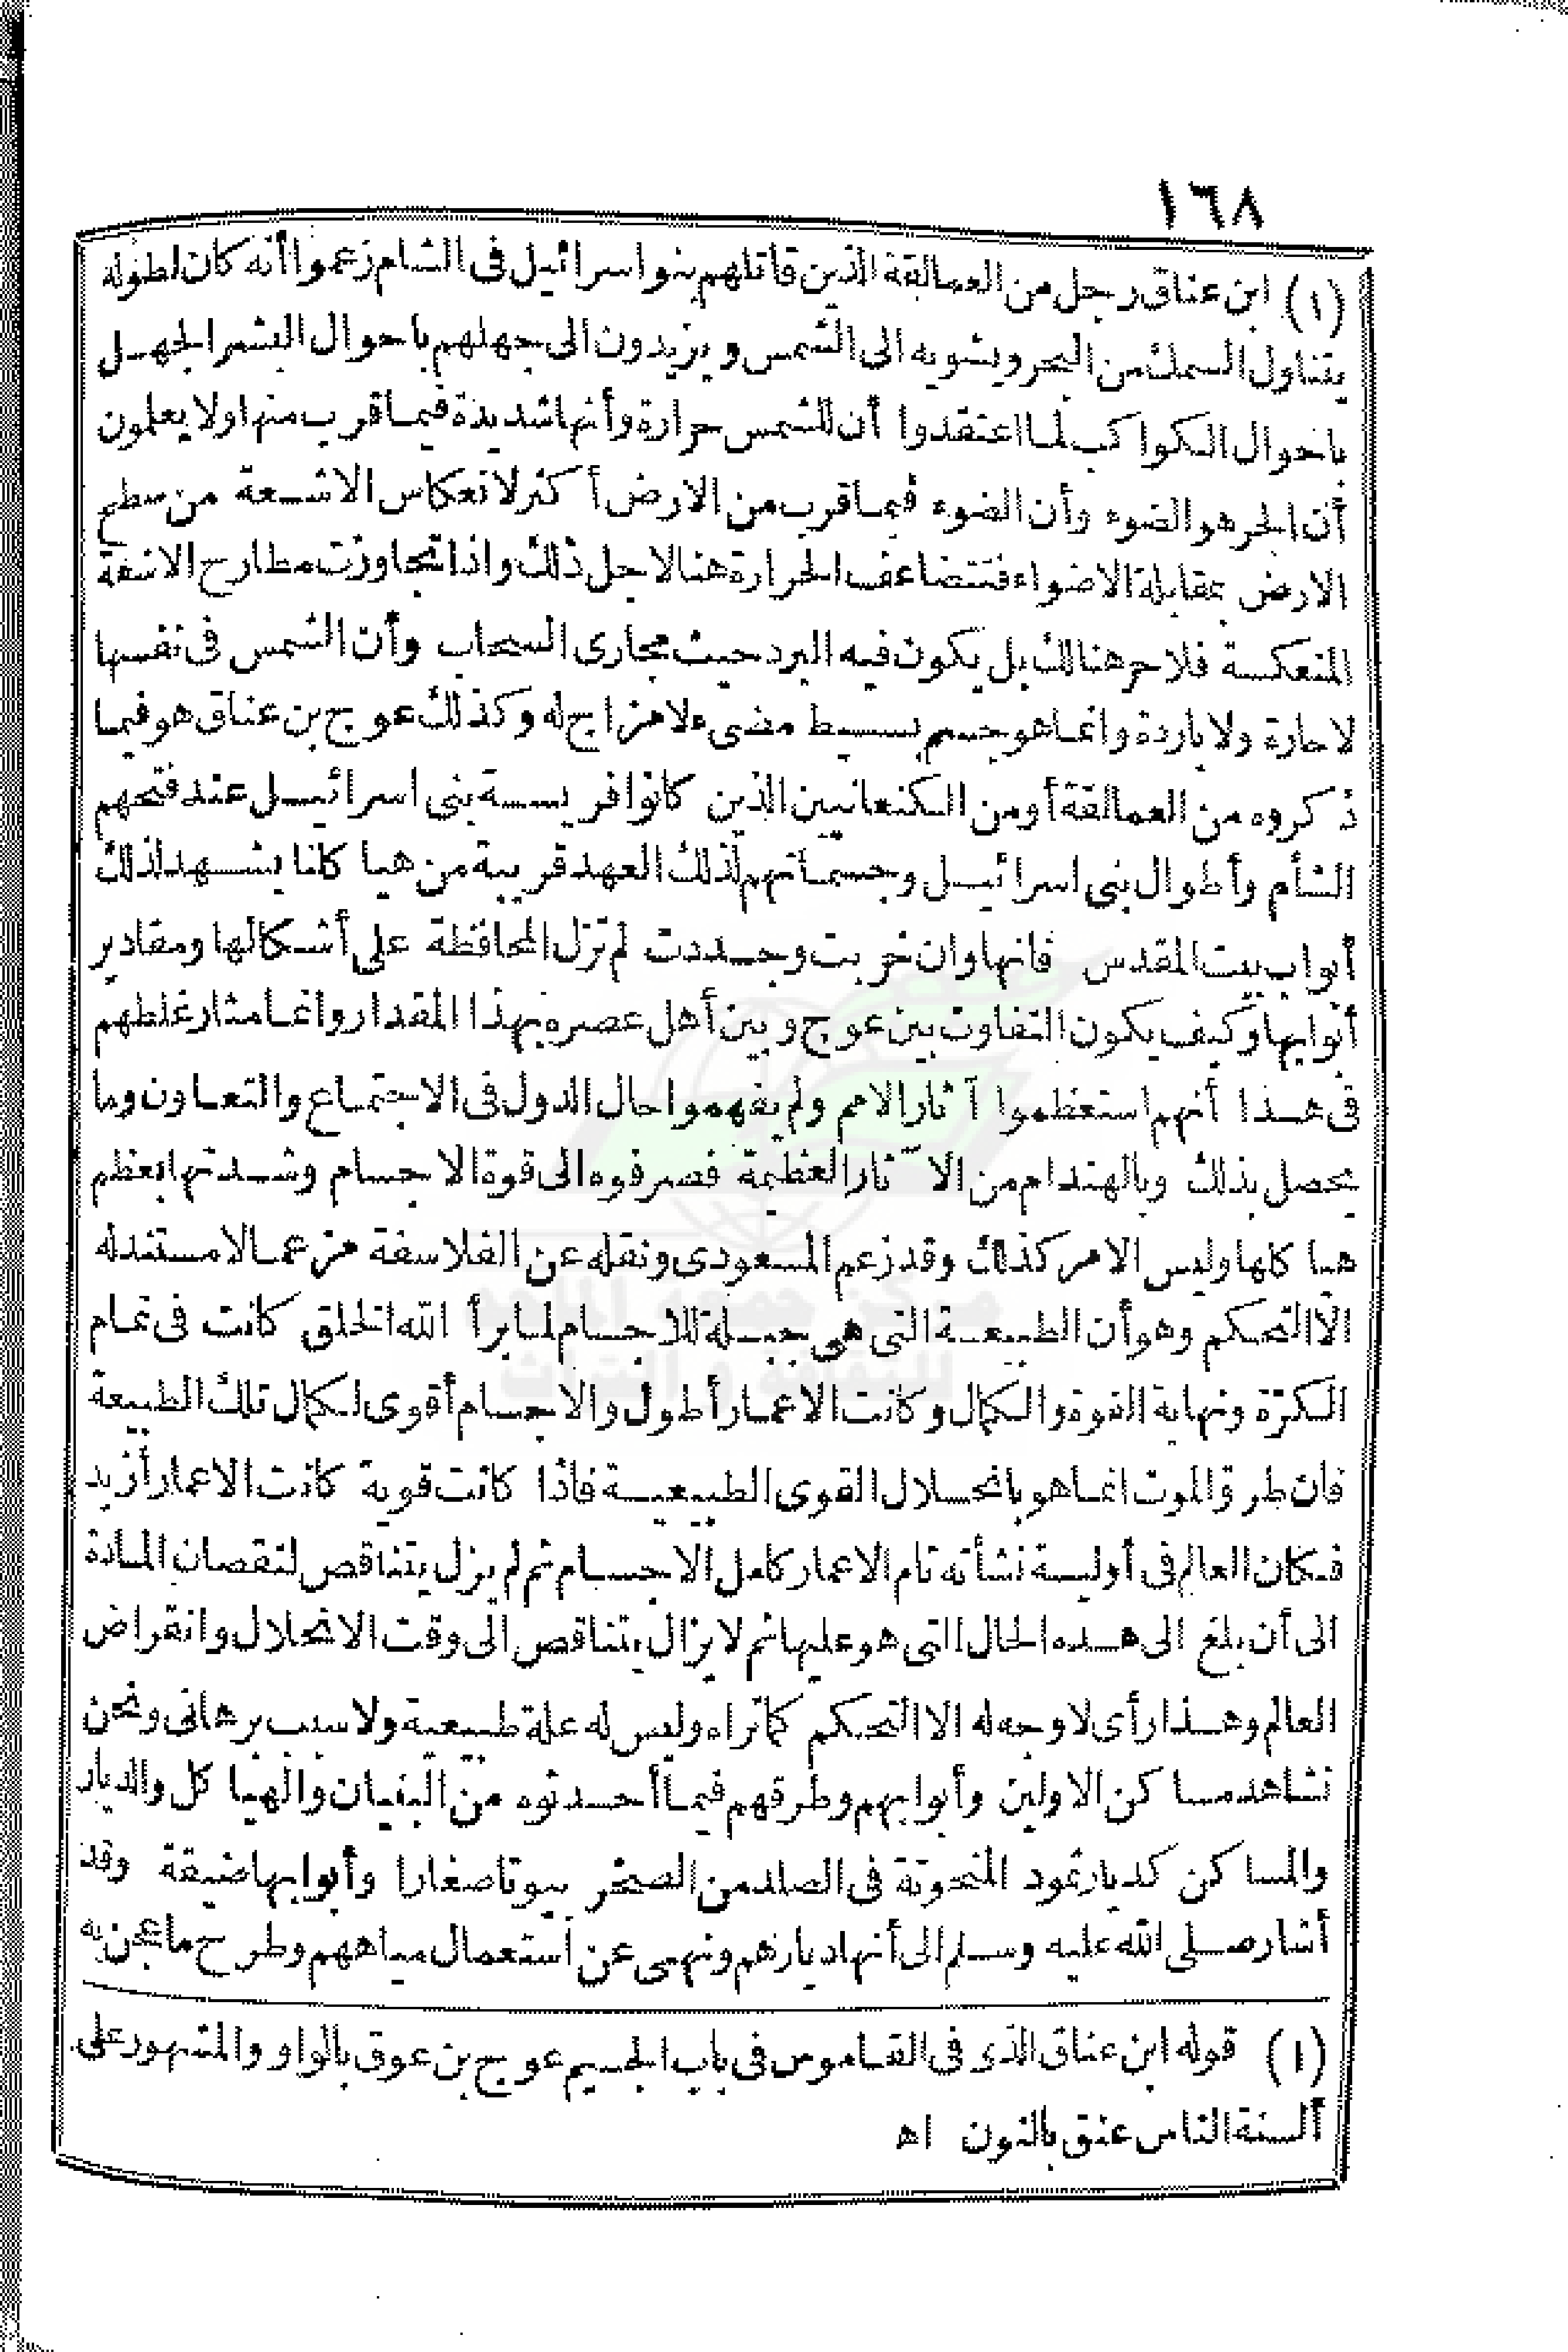 ١٦٨
(١) ابن عناق رجل من العمالقة الذين قاتلهم بنو اسرائيل فى الشام زعموا أنه كان لطوله
يتناول السمك من البحر ويشويه الى الشمس ويزيدون الى جهلهم باحوال البشر الجهل
باحوال الكواكب لما اعتقدوا أن للشمس حرارة وأنها شديدة فيما قرب منها ولا يعلمون
أن الحر هو الضوء وأن الضوء فيما قرب من الارض أكثر لانعكاس الاشعة من سطح
الارض بمقابلة الاضواء فتتضاعف الحرارة هنا لاجل ذلك واذا تجاوزت مطارح الاشعة
المنعكسة فلا حر هنالك بل يكون فيه البرد حيث مجارى السحاب وأن الشمس فى نفسها
لا حارة ولا باردة وانما هو جسم بسيط مضىء لا مزاج له وكذلك عوج بن عناق هو فيما
ذكروه من العمالقة أو من الكنعانيين الذين كانوا فريسة بنى اسرائيل عند فتحهم
الشأم وأطوال بنى اسرائيل وجسمانهم لذلك العهد قريبة من هيا كلنا يشهد لذلك
أبواب بيت المقدس فانها وان خربت وجددت لم تزل المحافظة على أشكالها ومقادير
أبوابها وكيف يكون التفاوت بين عوج وبين أهل عصره بهذا المقدار وانما مثار غلطهم
فى هذا أنهم استعظموا آثار الامم ولم يفهموا حال الدول فى الاجتماع والتعاون وما
يحصل بذلك وبالهندام من الآثار العظيمة فصرفوه الى قوة الاجسام وشدتها بعظم
هيا كلها وليس الامر كذلك وقد زعم المسعودى ونقله عن الفلاسفة مزعما لا مستند له
الا التحكم وهو أن الطبيعة التى هى جبلة للاجسام لما برأ الله الخلق كانت فى تمام
الكرة ونهاية القوة والكمال وكانت الاعمار أطول والاجسام أقوى لكمال تلك الطبيعة
فان طروّ الموت انما هو بانحلال القوى الطبيعية فاذا كانت قوية كانت الاعمار أزيد
فكان العالم فى أولية نشأته تام الاعمار كامل الاجسام ثم لم يزل يتناقص لنقصان المادة
الى أن بلغ الى هذه الحال التى هو عليها ثم لا يزال يتناقص الى وقت الانحلال وانقراض
العالم وهذا رأى لا وجه له الا التحكم كما تراه وليس له علة طبيعية ولا سبب برهانى ونحن
نشاهد مساكن الاولين وأبوابهم وطرقهم فيما أحدثوه من البنيان والهيا كل والديار
والمساكن كديار ثمود المنحوتة فى الصلد من الصخر بيوتا صغارا وأبوابها ضيقة وقد
أشار صلى الله عليه وسلم الى أنها ديارهم ونهى عن استعمال مياههم وطرح ما عجن به
(١) قوله ابن عناق الذى فى القاموس فى باب الجيم عوج بن عوق بالواو والمشهور على
ألسنة الناس عنق بالنون اه
مركز جمعة الماجد
للثقافة و التراث